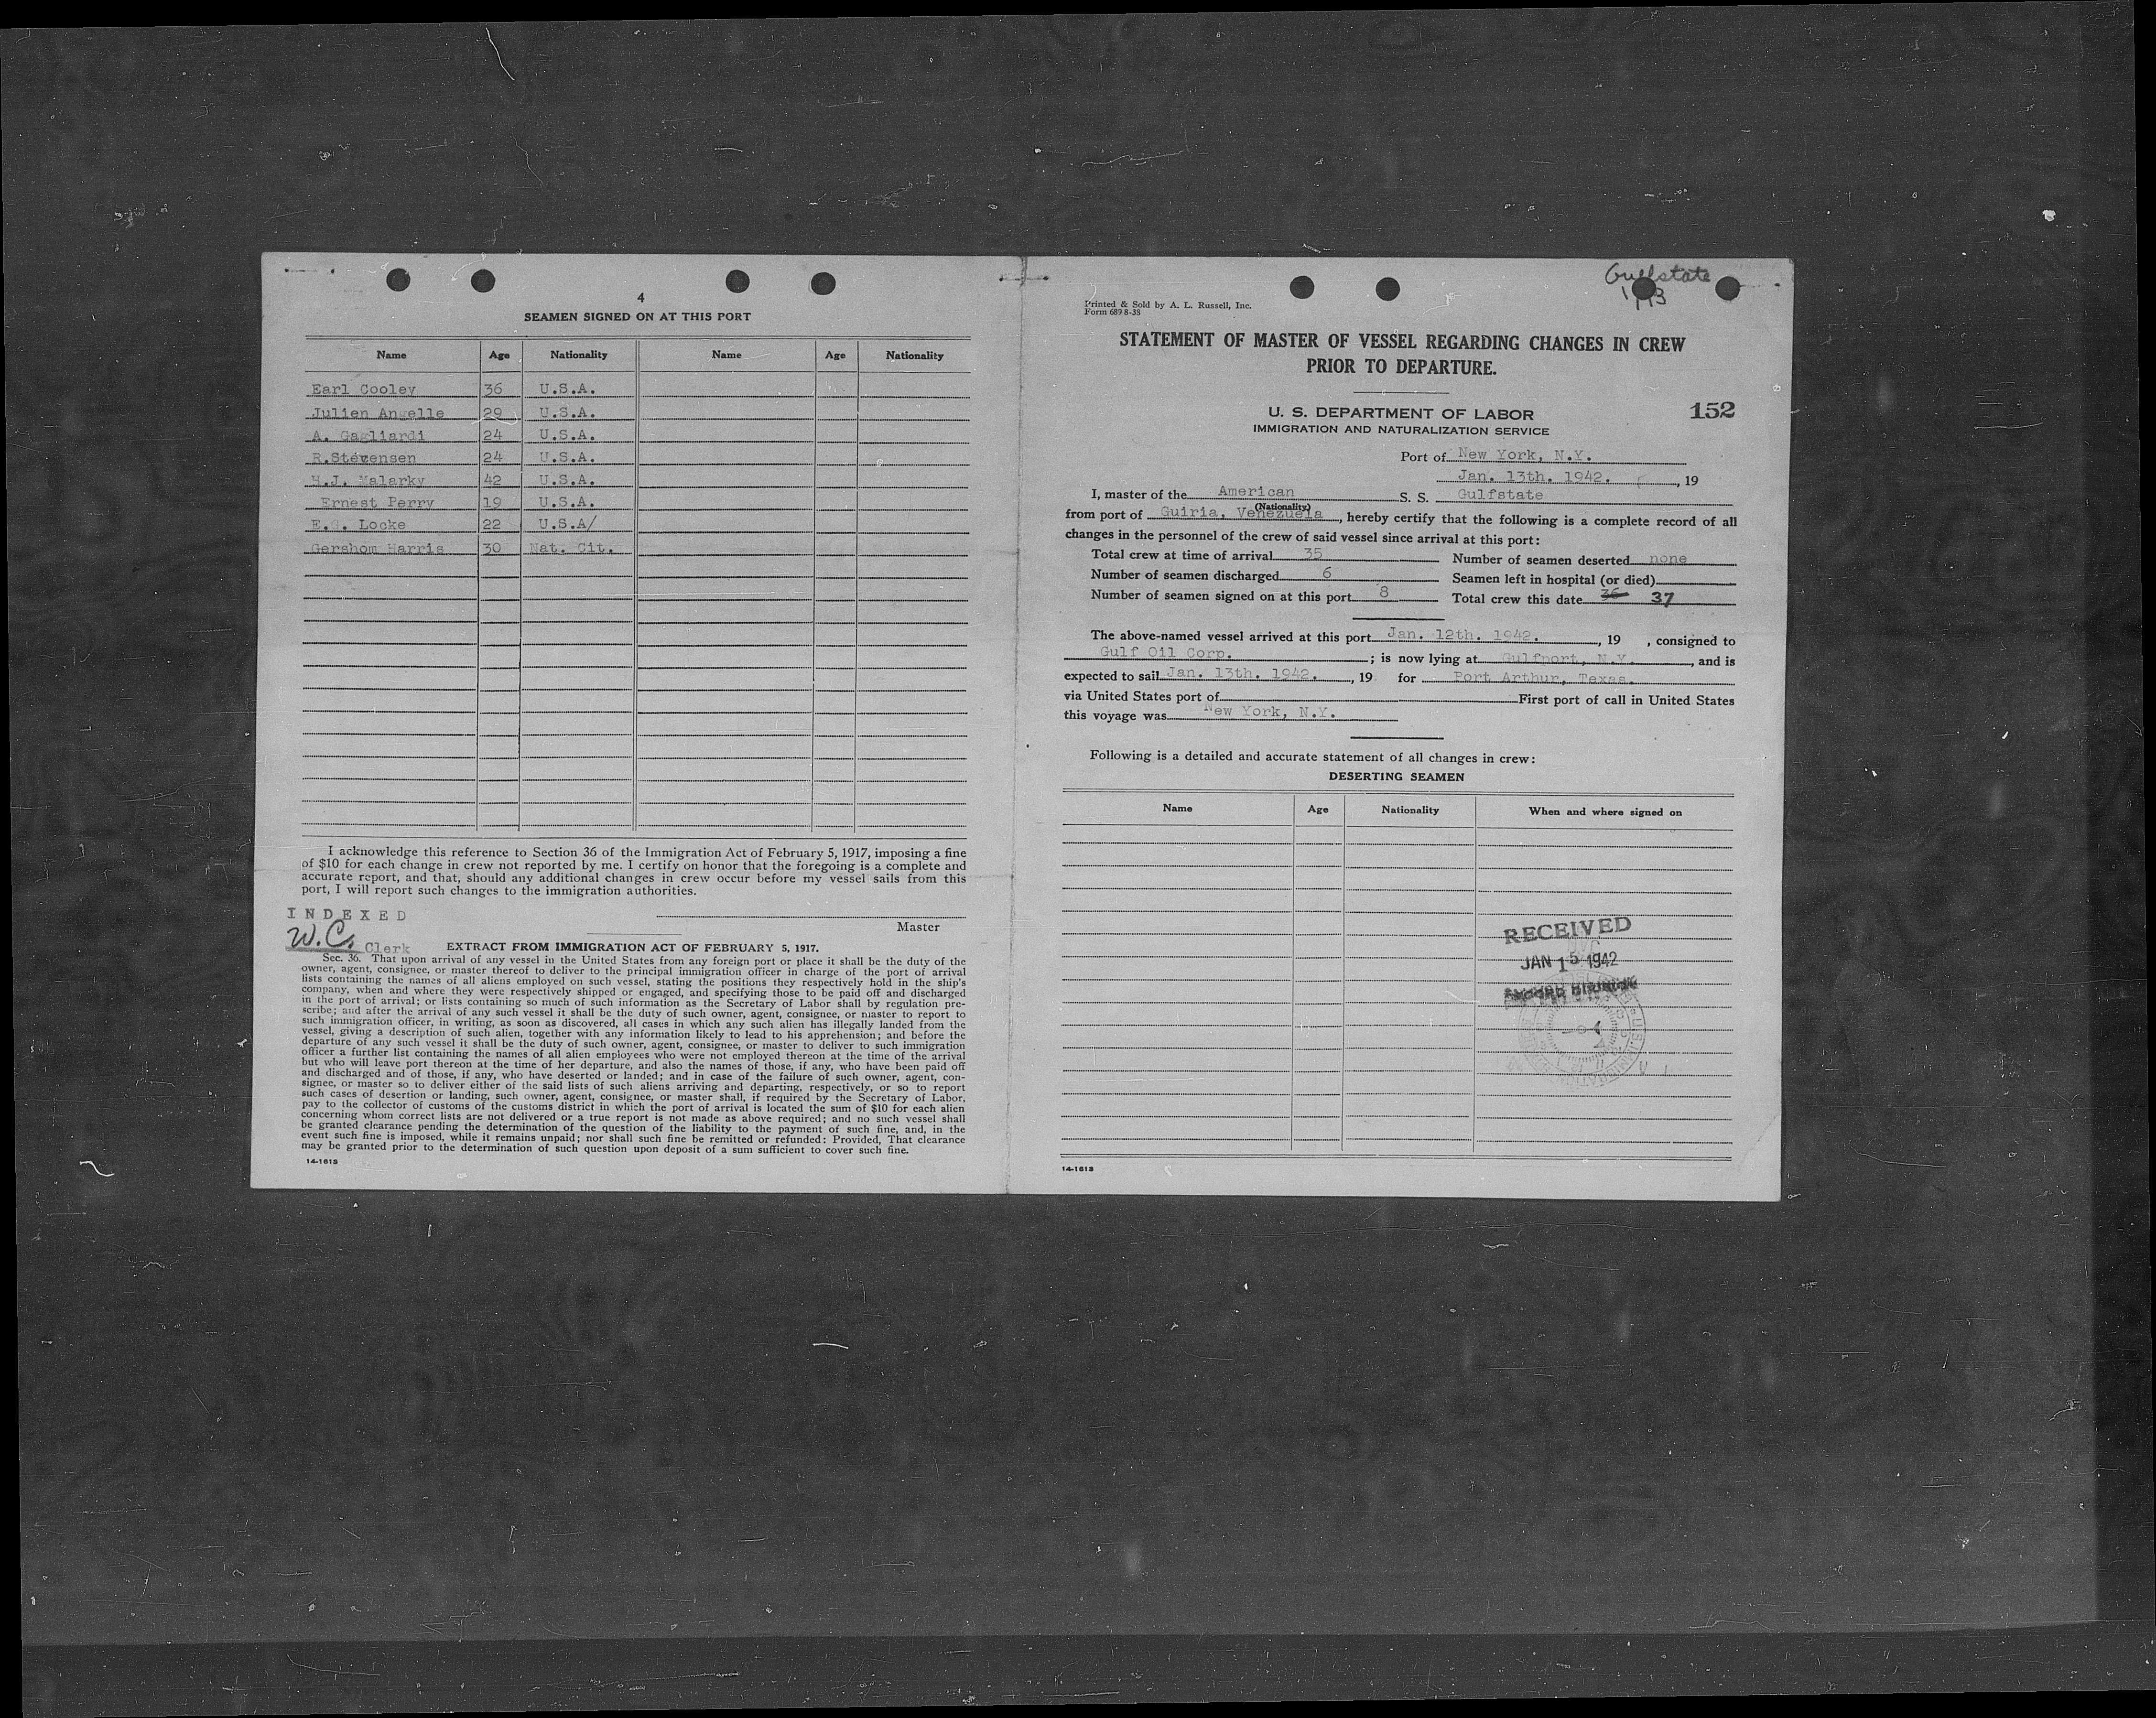 4
SEAMEN SIGNED ON AT THIS PORT
Name Age Nationality Name Age Nationality
Earl Cooley 36 U.S.A.
Julien Angelle 29 U.S.A.
A. Gagliardi 24 U.S.A.
R.Stevensen 24 U.S.A.
H.J. Malarky 42 U.S.A.
Ernest Perry 19 U.S.A.
E.G. Locke 22 U.S.A/
Gershom Harris 30 Nat. Cit.
I acknowledge this reference to Section 36 of the Immigration Act of February 5, 1917, imposing a fine
of $10 for each change in crew not reported by me. I certify on honor that the foregoing is a complete and
accurate report, and that, should any additional changes in crew occur before my vessel sails from this
port, I will report such changes to the immigration authorities.
INDEXED
W.C. Clerk
Master
EXTRACT FROM IMMIGRATION ACT OF FEBRUARY 5, 1917.
Sec. 36. That upon arrival of any vessel in the United States from any foreign port or place it shall be the duty of the
owner, agent, consignee, or master thereof to deliver to the principal immigration officer in charge of the port of arrival
lists containing the names of all aliens employed on such vessel, stating the positions they respectively hold in the ship's
company, when and where they were respectively shipped or engaged, and specifying those to be paid off and discharged
in the port of arrival; or lists containing so much of such information as the Secretary of Labor shall by regulation pre-
scribe; and after the arrival of any such vessel it shall be the duty of such owner, agent, consignee, or master to report to
such immigration officer, in writing, as soon as discovered, all cases in which any such alien has illegally landed from the
vessel, giving a description of such alien, together with any information likely to lead to his apprehension; and before the
departure of any such vessel it shall be the duty of such owner, agent, consignee, or master to deliver to such immigration
officer a further list containing the names of all alien employees who were not employed thereon at the time of the arrival
but who will leave port thereon at the time of her departure, and also the names of those, if any, who have been paid off
and discharged and of those, if any, who have deserted or landed; and in case of the failure of such owner, agent, con-
signee, or master so to deliver either of the said lists of such aliens arriving and departing, respectively, or so to report
such cases of desertion or landing, such owner, agent, consignee, or master shall, if required by the Secretary of Labor,
pay to the collector of customs of the customs district in which the port of arrival is located the sum of $10 for each alien
concerning whom correct lists are not delivered or a true report is not made as above required; and no such vessel shall
be granted clearance pending the determination of the question of the liability to the payment of such fine, and, in the
event such fine is imposed, while it remains unpaid; nor shall such fine be remitted or refunded: Provided, That clearance
may be granted prior to the determination of such question upon deposit of a sum sufficient to cover such fine.
14-1613
Gulfstate
1/13
Printed & Sold by A. L. Russell, Inc.
Form 689 8-38
STATEMENT OF MASTER OF VESSEL REGARDING CHANGES IN CREW
PRIOR TO DEPARTURE.
U. S. DEPARTMENT OF LABOR
152
IMMIGRATION AND NATURALIZATION SERVICE
Port of New York, N.Y.
Jan. 13th. 1942. , 19
I, master of the American S. S. Gulfstate
(Nationality)
from port of Guiria, Venezuela, hereby certify that the following is a complete record of all
changes in the personnel of the crew of said vessel since arrival at this port:
Total crew at time of arrival 35 Number of seamen deserted none
Number of seamen discharged 6 Seamen left in hospital (or died)
Number of seamen signed on at this port 8 Total crew this date 36 37
The above-named vessel arrived at this port Jan. 12th. 1942. , 19 , consigned to
Gulf Oil Corp. ; is now lying at Gulfport, N.Y. , and is
expected to sail Jan. 13th. 1942. , 19 for Port Arthur, Texas.
via United States port of First port of call in United States
this voyage was New York, N.Y.
Following is a detailed and accurate statement of all changes in crew:
DESERTING SEAMEN
Name Age Nationality When and where signed on
RECEIVED
JAN 15 1942
RECORD DIVISION
14-1613